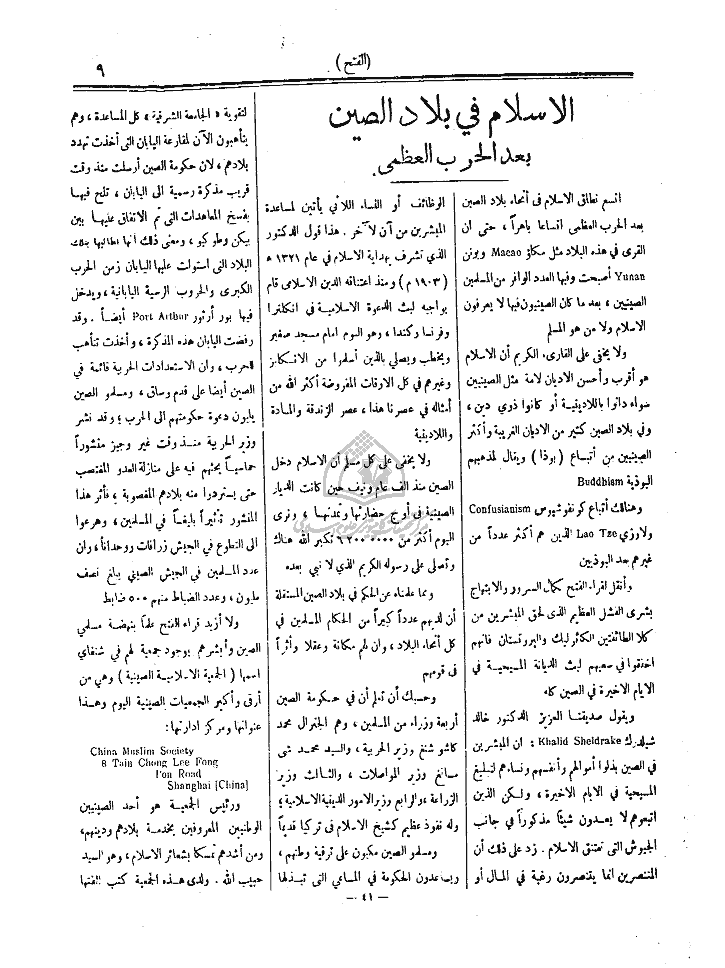 (الفتح)
٩
الاسلام في بلاد الصين
بعد الحرب العظمى
اتسع نطاق الاسلام فى أنحاء بلاد الصين
بعد الحرب العظمى اتساعا باهراً ، حتى ان
القرى في هذه البلاد مثل مكاؤ Macao ويونن
Yunan أصبحت وفيها العدد الوافر من المسلمين
الصينيين ، بعد ما كان الصينيون فيها لا يعرفون
الاسلام ولا من هو المسلم
ولا يخفى على القارىء الكريم أن الاسلام
هو أقرب وأحسن الاديان لامة مثل الصينيين
سواء دانوا باللادينية أو كانوا ذوي دين ،
وفي بلاد الصين كثير من الاديان الغريبة وأكثر
الصينيين من أتباع ( بوذا ) ويقال لمذهبهم
البوذية Buddhism
وهنالك أتباع كونفوشيوس Confusianism
ولاوزي Lao Tze الذين هم أكثر عدداً من
غيرهم بعد البوذيين
وأنقل لقراء الفتح بكمال السرور والابتهاج
بشرى الفشل العظيم الذى لحق المبشرين من
كلا الطائفتين الكاثوليك والبروتستان فانهم
اخفقوا في سعيهم لبث الديانة المسيحية في
الايام الاخيرة في الصين كله
ويقول صديقنا العزيز الدكتور خالد
شيلدرك Khalid Sheldrake : ان المبشرين
في الصين بذلوا أموالهم وأنفسهم ونساءهم لتبليغ
المسيحية في الايام الاخيرة ، ولكن الذين
اتبعوهم لا يعدون شيئاً مذكوراً في جانب
الجيوش التى تعتنق الاسلام . زد على ذلك أن
المتنصرين انما يتنصرون رغبة في المال أو
الوظائف أو النساء اللاتي يأتين لمساعدة
المبشرين من آن لآخر . هذا قول الدكتور
الذي تشرف بهداية الاسلام في عام ١٣٢١ هـ
( ١٩٠٣ م ) ومنذ اعتناقه الدين الاسلامى قام
بواجبه لبث الدعوة الاسلامية في انكلترا
وفرنسا وكندا ، وهو اليوم امام مسجد صغير
ويخطب ويصلي بالذين أسلموا من الانكليز
وغيرهم في كل الاوقات المفروضة أكثر الله من
أمثاله في عصرنا هذا ، عصر الزندقة والمادة
واللادينية
ولا يخفى على كل مسلم أن الاسلام دخل
الصين منذ الف عام ونيف حين كانت الديار
الصينية في أوج حضارتها وتمدنها ، ونرى
اليوم أكثر من ٦٢٠٠٠٠٠٠ تكبر الله هناك
وتصلي على رسوله الكريم الذي لا نبي بعده
ومما علمناه عن الحكم في بلاد الصين المستقلة
أن لديهم عدداً كبيراً من الحكام المسلمين في
كل أنحاء البلاد ، وان لهم مكانة وعقلا وأثراً
فى قومهم
وحسبك أن تعلم أن في حكومة الصين
أربعة وزراء من المسلمين ، وهم الجنرال محمد
كاشو شنغ وزير الحربية ، والسيد محمد شي
سانغ وزير المواصلات ، والثالث وزير
الزراعة ، والرابع وزير الامور الدينية الاسلامية ؛
وله نفوذ عظيم كشيخ الاسلام فى تركيا قديماً
ومسلمو الصين مكبون على ترقية وطنهم ،
ويساعدون الحكومة في المساعي التى تبذلها
لتقوية « الجامعة الشرقية » كل المساعدة ، وهم
يتأهبون الآن لمقارعة اليابان التى أخذت تهدد
بلادهم ، لان حكومة الصين أرسلت منذ وقت
قريب مذكرة رسمية الى اليابان ، تلح فيها
بفسخ المعاهدات التى تم الاتفاق عليها بين
بيكن وطوكيو ، ومعنى ذلك انها تطالبها بتلك
البلاد التى استولت عليها اليابان زمن الحرب
الكبرى والحروب الرسية اليابانية ، ويدخل
فيها بور أرثور Port Arthur أيضاً . وقد
رفضت اليابان هذه المذكرة ، وأخذت تتأهب
للحرب ، وان الاستعدادات الحربية قائمة في
الصين أيضا على قدم وساق ، ومسلمو الصين
يلبون دعوة حكومتهم الى الحرب ؛ وقد نشر
وزير الحربية منذ وقت غير وجيز منشوراً
حماسياً يحثهم فيه على منازلة العدو المغتصب
حتى يستردوا منه بلادهم المغصوبة ، فأثر هذا
المنشور تأثيراً بليغاً في المسلمين ، وهرعوا
الى التطوع في الجيش زرافات ووحداناً ، وان
عدد المسلمين في الجيش الصيني يبلغ نصف
مليون ، وعدد الضباط منهم ٥٠٠ ضابط
ولا أزيد قراء الفتح علماً بنهضة مسلمي
الصين وأبشرهم بوجود جمعية لهم في شنغاي
اسمها ( الجمعية الاسلامية الصينية ) وهي من
أرقى وأكبر الجمعيات الصينية اليوم وهذا
عنوانها ومركز ادارتها :
China Muslim Society
8 Tain Chong Lee Fong
I'on Road
Shanghai [China]
ورئيس الجمعية هو أحد الصينيين
الوطنيين المعروفين بخدمة بلادهم ودينهم ،
ومن أشدهم تمسكا بشعائر الاسلام ، وهو السيد
حبيب الله . ولدى هذه الجمعية كتب الفتها
— ٤١ —